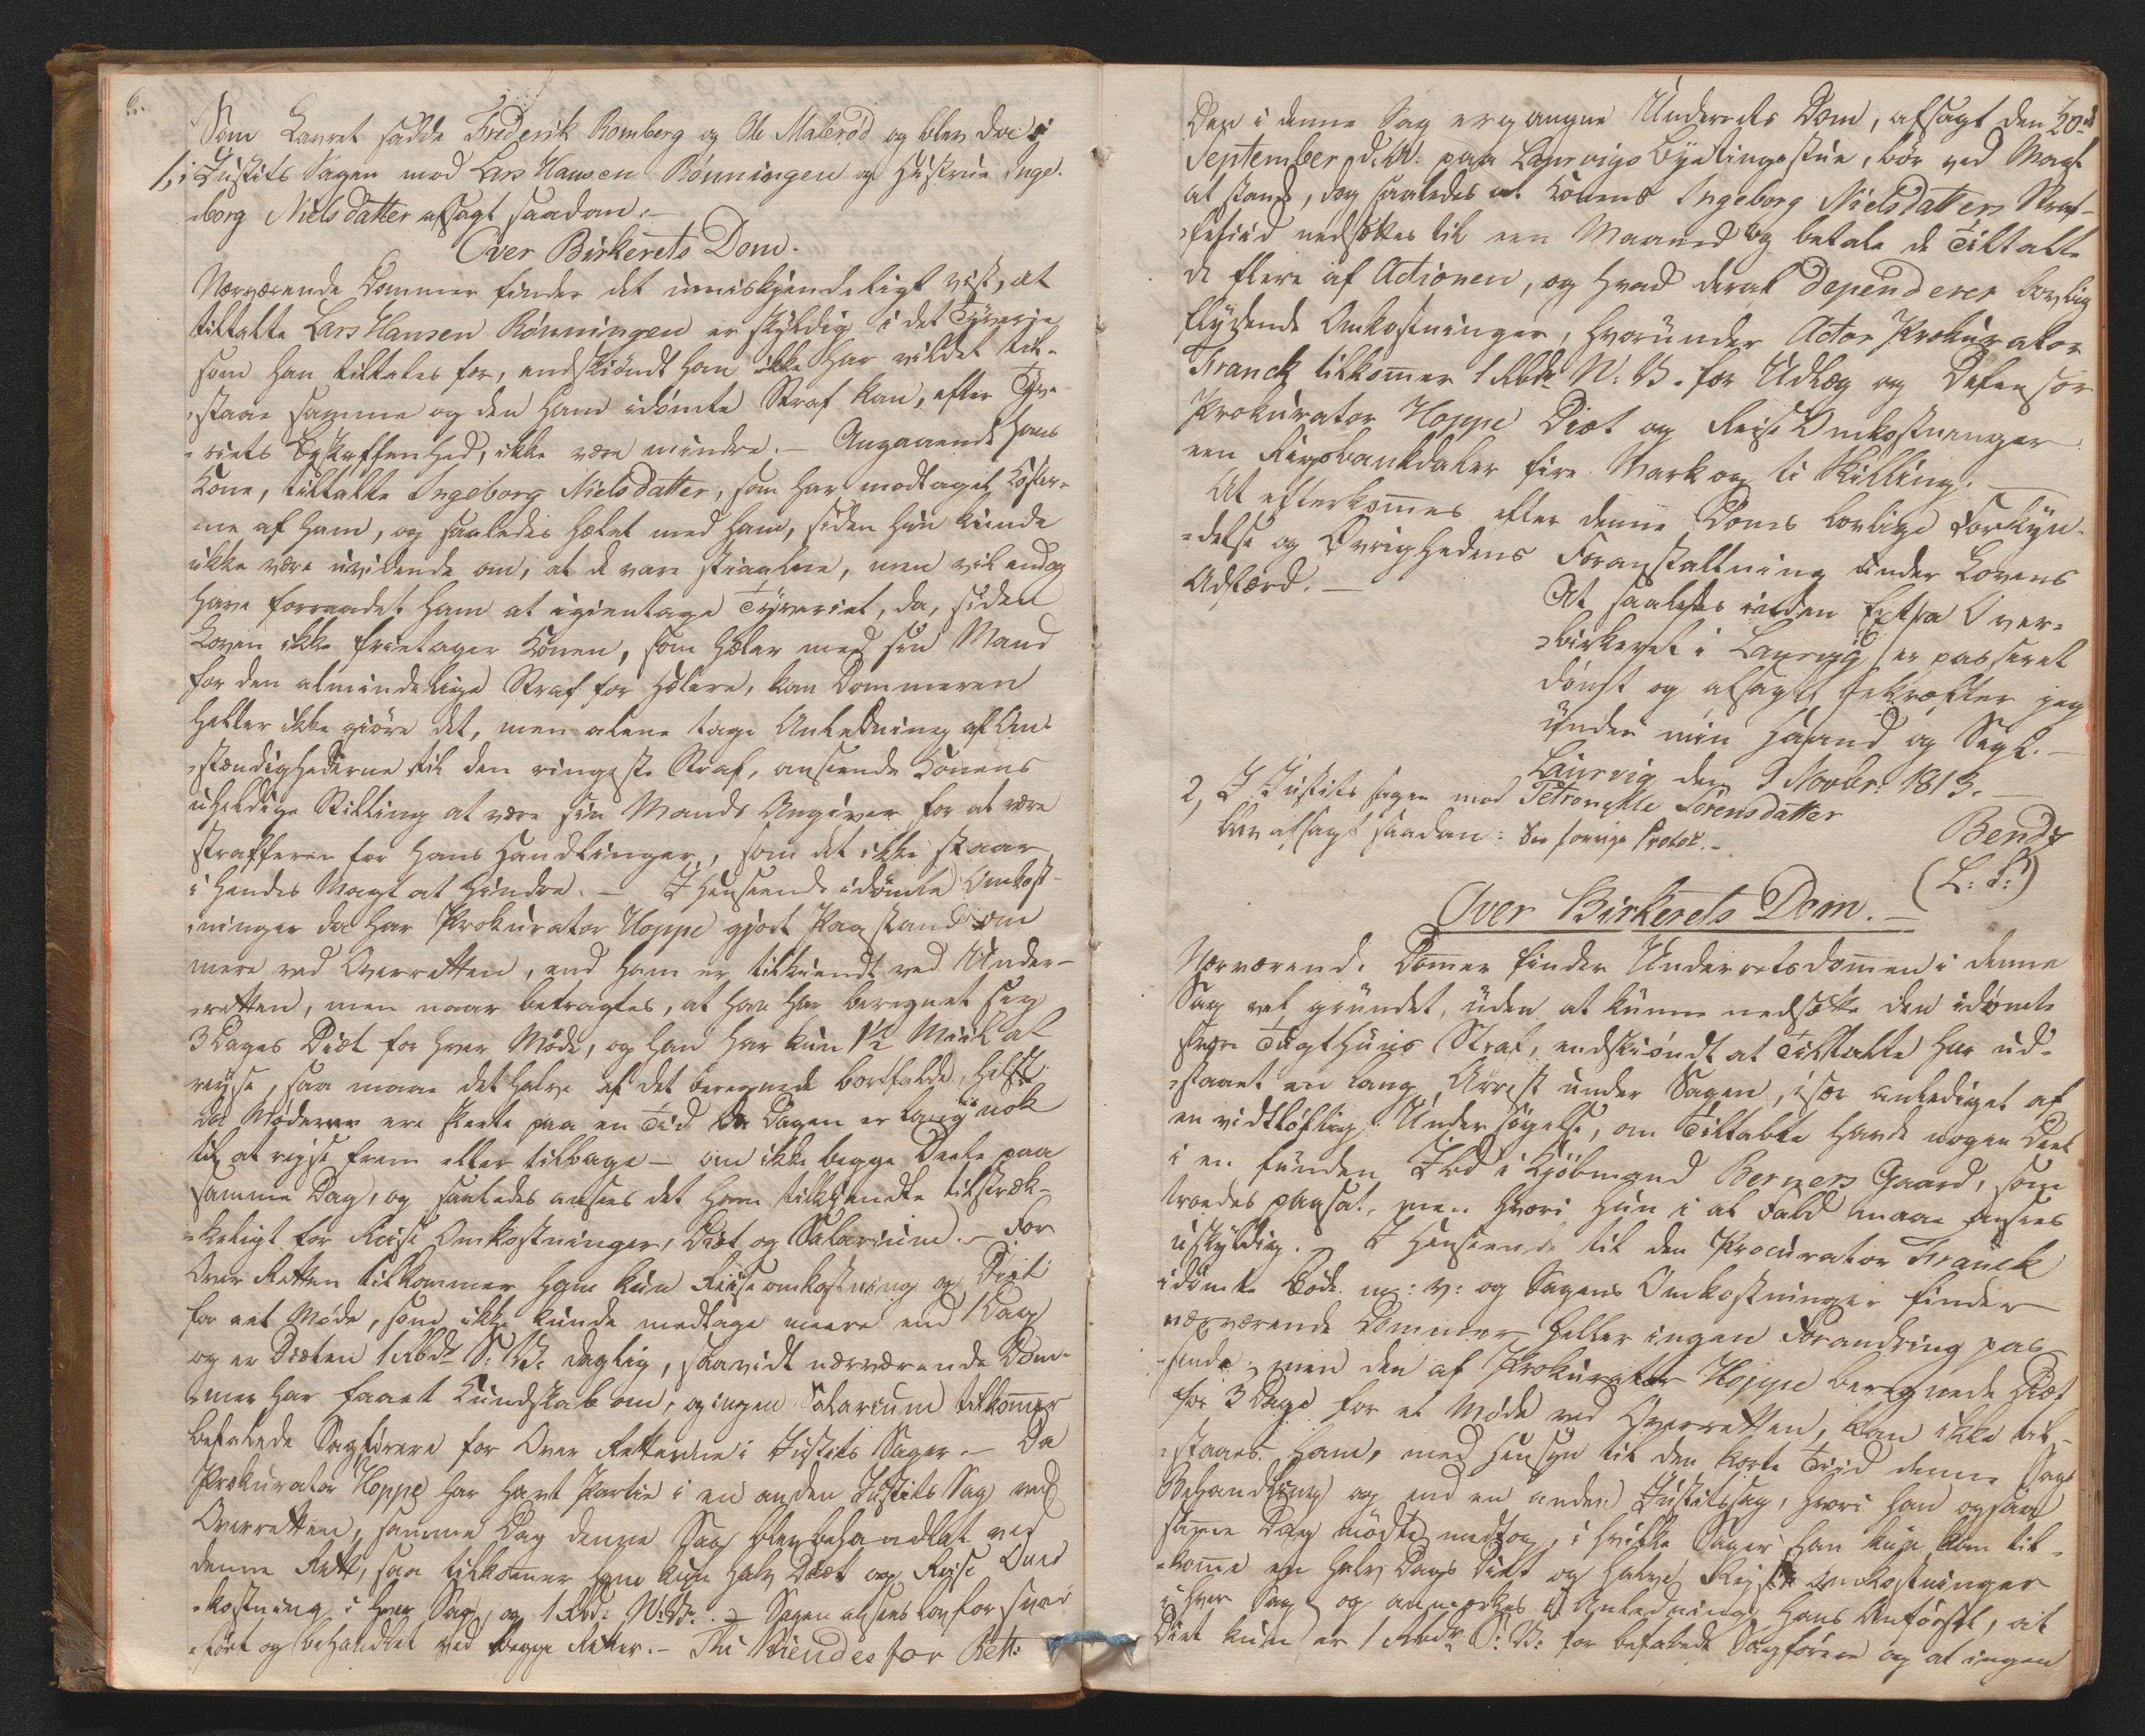 Som Lavret sadde Frederik Romberg og Ole Malerød og blev da i
1, i Justits Sagen mod Lars Hansen Rønningen og Hustrue Inge-
borg Nielsdatter afsagt saadan:
Over Birkerets Dom.
Nærværende Dommer finder det umiskjendeligt vist, at
tiltalte Lars Hansen Rønningen er skyldig i det Tyverie
som han tiltales for, endskiøndt han ikke har villet til-
staae samme og den ham idømte Straf kan, efter Tyve-
riets Beskaffenhed, ikke være mindre. – Angaaende hans
Kone, tiltalte Ingeborg Nielsdatter, som har modtaget Koster-
ne af ham, og saaledes hælet med ham, siden hun kunde
ikke være uvidende om, at de vare stiaalne, men vil endog
have forraadet ham at igientage Tyveriet, da, siden
Loven ikke fritager Konen, som hæler med sin Mand
for den almindelige Straf for Hælere, kan Dommeren
heller ikke giøre det, men alene tage Anledning af Om-
stændighederne til den ringeste Straf, anseende Konens
uheldige Stilling at være sin Mands Angiver for at være
straffrie for hans Handlinger, som det ikke staar
i hendes Magt at hindre. – I Henseende idømte Omkost-
ninger da har Prokurator Hoppe gjort Paastand om
mere ved Overretten, end ham er tilkiendt ved Under-
retten, men naar betragtes, at han har beregnet sig
3 Dages Diæt for hver Møde, og han har kun 1½ Miil at
reyse, saa maae det halve af det beregnede bortfalde, helst
da Møderne ere skeete paa en Tid da Dagen er lang nok
til at reyse frem eller tilbage – om ikke begge Deele paa
samme Dag, og saaledes ansees det ham tilkiendte tilstræk-
keligt for Reise Omkostninger, Diæt og Salarium. – For
Over Retten tilkommer ham kun Reiseomkostning og Diæt
for eet Møde, som ikke kunde medtage meere end 1 Dag
og er Diæten 1 Rbdr S: V: daglig, saavidt nærværende Dom-
mer har faaet Kundskab om, og ingen Salarium tilkommer
befalede Sagførere for Over Retterne i Justits Sager. – Da
Prokurator Hoppe har havt Partie i en anden Justits Sag ved
Overretten, samme Dag denne Sag blev behandlet ved
denne Rett, saa tilkommer ham kun halv Diæt og Reise Om-
kostning i hver Sag, og 1 Rbd: N: V: – Sagen ansees lovforsvar-
ført og behandlet ved begge Retter. – Thi kiendes for Ret:
Den i denne Sag ergangne Underrets Dom, afsagt den 20de
September d. A: paa Laurvigs Byetingstue, bør ved Magt
at stande, dog saaledes at Konens Ingeborg Nielsdatters Straf-
fetiid nedsættes til een Maaned og betale de Tiltalte
de flere af Actionen, og hvad deraf dependerer lovlig
flydende Omkostninger, hvorunder Actor Prokurator
Franck tilkommer 1 Rbdr N: V. for Udlæg og Defensor
Prokurator Hoppe Diæt og Reise Omkostninger
een Rigsbankdaler fire Mark og ti Skilling. –
At efterkommes efter denne Doms lovlige Forkyn-
delse og Øvrighedens Foranstaltning under Lovens
Adfærd. –
At saaledes inden Extra Over-
birkeret i Laurvig er passeret
dømt og afsagt bekræfter jeg
under min Haand og Segl. –
Laurvig den 9 Novbr: 1813.
Bendz
(L: S:)
2, I Justits sagen mod Petronelle Sørensdatter
blev afsagt saadan: See forrige Protok. –
Over Birkerets Dom. –
Nærværende Dommer finder Underretsdommen i denne
Sag vel grundet, uden at kunne nedsætte den idømte
svære Tugthuus Straf, endskiøndt at Tiltalte har ud-
staaet en lang Arrest under Sagen, især anlediget af
en vidtløftig Undersøgelse, om Tiltalte havde nogen Deel
i en funden Ild i Kjøbmand Berners Gaard, som
troedes paasat, men hvori hun i al Fald maae ansees
uskyldig. – I Henseende til den Procurator Franck
idømte Bøde m: v: og Sagens Omkostninger finder
nærværende Dommer heller ingen Forandring pas-
sende; men den af Prokurator Hoppe beregnede Diæt
for 3 Dage for et Møde ved Overretten, kan ikke til-
staaes ham, med Hensyn til den korte Tiid denne Sags
Behandling og end en anden Justitssag, hvori han ogsaa
samme Dag mødte medtog, i hvilke Sager han kun kan til-
komme en halv Dags Diæt og halve Reyse Omkostninger
i hver Sag og anmerkes i Anledning hans Anførsel, at
Diæt kun er 1 Rbdr S: V: for befalede Sagførere og at ingen